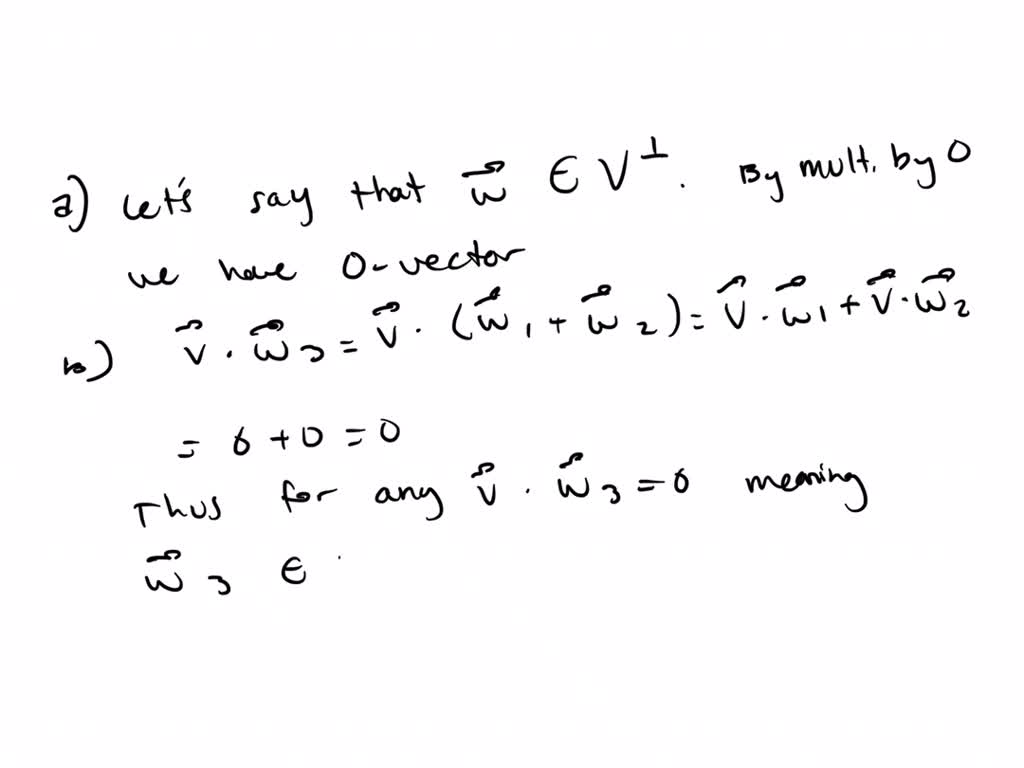 a) Let's say that w⃗ ∈ V⊥. By mult. by 0
we have 0-vector
b) v⃗ · w⃗3 = v⃗ · (w⃗1 + w⃗2) = v⃗ · w⃗1 + v⃗ · w⃗2
= 0 + 0 = 0
Thus for any v⃗ · w⃗3 = 0 meaning
w⃗3 ∈